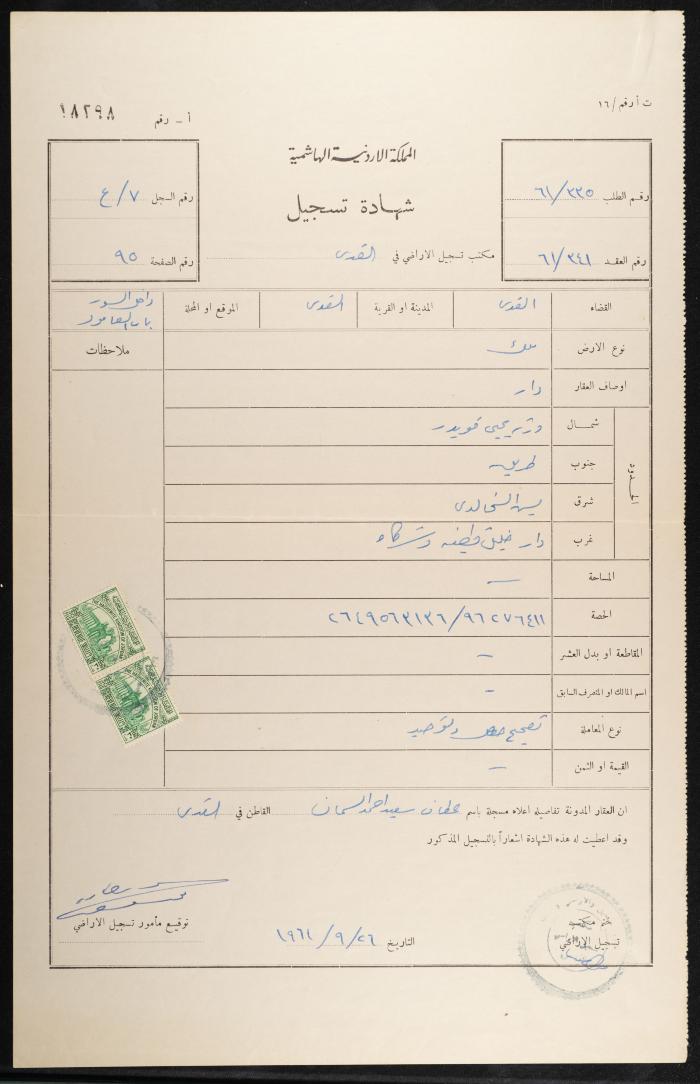 ت أ رقم / ١٦
أ - رقم ١٨٢٩٨
المملكة الاردنية الهاشمية
شهادة تسجيل
رقم الطلب ٦١/٣٣٥
رقم السجل ٧/ع
مكتب تسجيل الاراضي في القدس
رقم العقد ٦١/٣٤١
رقم الصفحة ٩٥
القضاء القدس المدينة او القرية القدس الموقع او المحلة داخل السور
باب العامود
نوع الارض ملك
ملاحظات
اوصاف العقار دار
الحدود
شمال يحيى قويدر
جنوب طريق
شرق الخالدي
غرب دار وشركاه
المساحة —
الحصة ٩٦٢٧٦٤١١/٢٦٤٩٥٦٣١٣٦
المقاطعة او بدل العشر —
اسم المالك او المتصرف السابق -
نوع المعاملة تصحيح وتوحيد
القيمة او الثمن —
ان العقار المدونة تفاصيله اعلاه مسجلة باسم سعيد احمد السمان القاطن في القدس
وقد اعطيت له هذه الشهادة اشعاراً بالتسجيل المذكور
توقيع مأمور تسجيل الاراضي
التاريخ ٢٦/٩/١٩٦١
ختم مكتب
تسجيل الاراضي